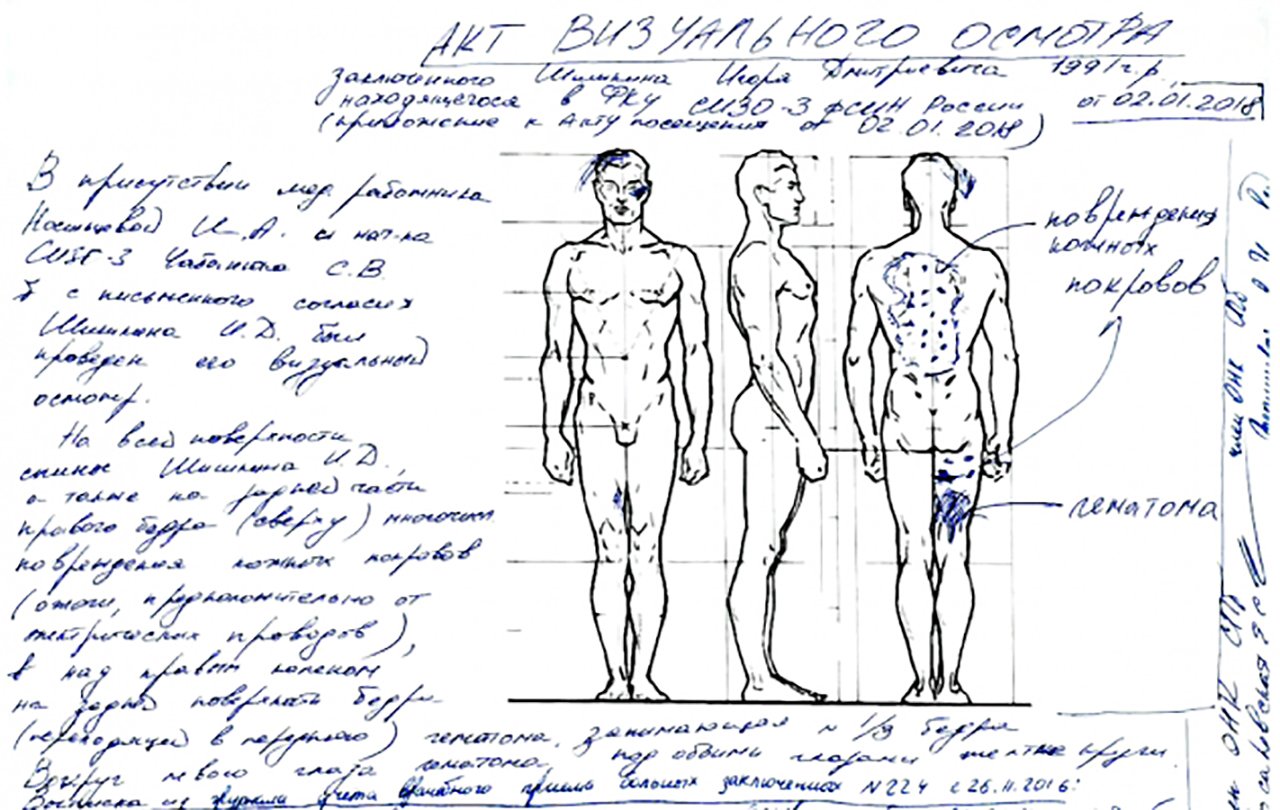 АКТ ВИЗУАЛЬНОГО ОСМОТРА
заключенного Шишкина Игоря Дмитриевича 1991 г.р.,
находящегося в ФКУ СИЗО-3 ФСИН России
(приложение к Акту посещения от 02.01.2018)
от 02.01.2018
В присутствии мед. работника
И.А. и нач-ка
СИЗО-3 С.В.
с письменного согласия
Шишкина И.Д. был
проведен его визуальный
осмотр.
На всей поверхности
спины Шишкина И.Д.,
а также на задней части
правого бедра (сверху) многочисл.
повреждения кожных покровов
(ожоги, предположительно от
электрических проводов),
и над правым коленом
на задней поверхности бедра
(переходящей в переднюю) гематома, занимающая ~ 1/3 бедра
Вокруг левого глаза гематома, под обоими глазами желтые круги.
Выписка из журнала учета врачебного приема больных заключенных N224 с 26.11.2016:
повреждения
кожных
покровов
гематома
член ОНК СПб